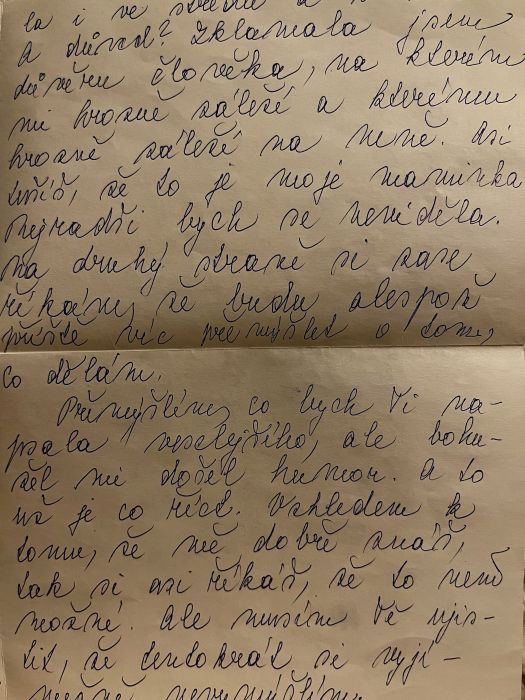 la i ve
A důvod? Zklamala jsem
důvěru člověka, na kterém
mi hrozně záleží a kterému
hrozně záleží na mně. Asi
tušíš, že to je moje maminka
Nejradši bych se neviděla.
na druhý straně si zase
říkám, že budu alespoň
příště víc přemýšlet o tom,
co dělám.
Přemýšlím, co bych Ti na-
psala veselejšího, ale bohu-
žel mi došel humor. A to
už je co říct. Vzhledem k
tomu, že mě dobře znáš,
tak si asi říkáš, že to není
možné. Ale musím Tě ujis-
tit, že tentokrát si vyjí-
mečně nevymýšlím.